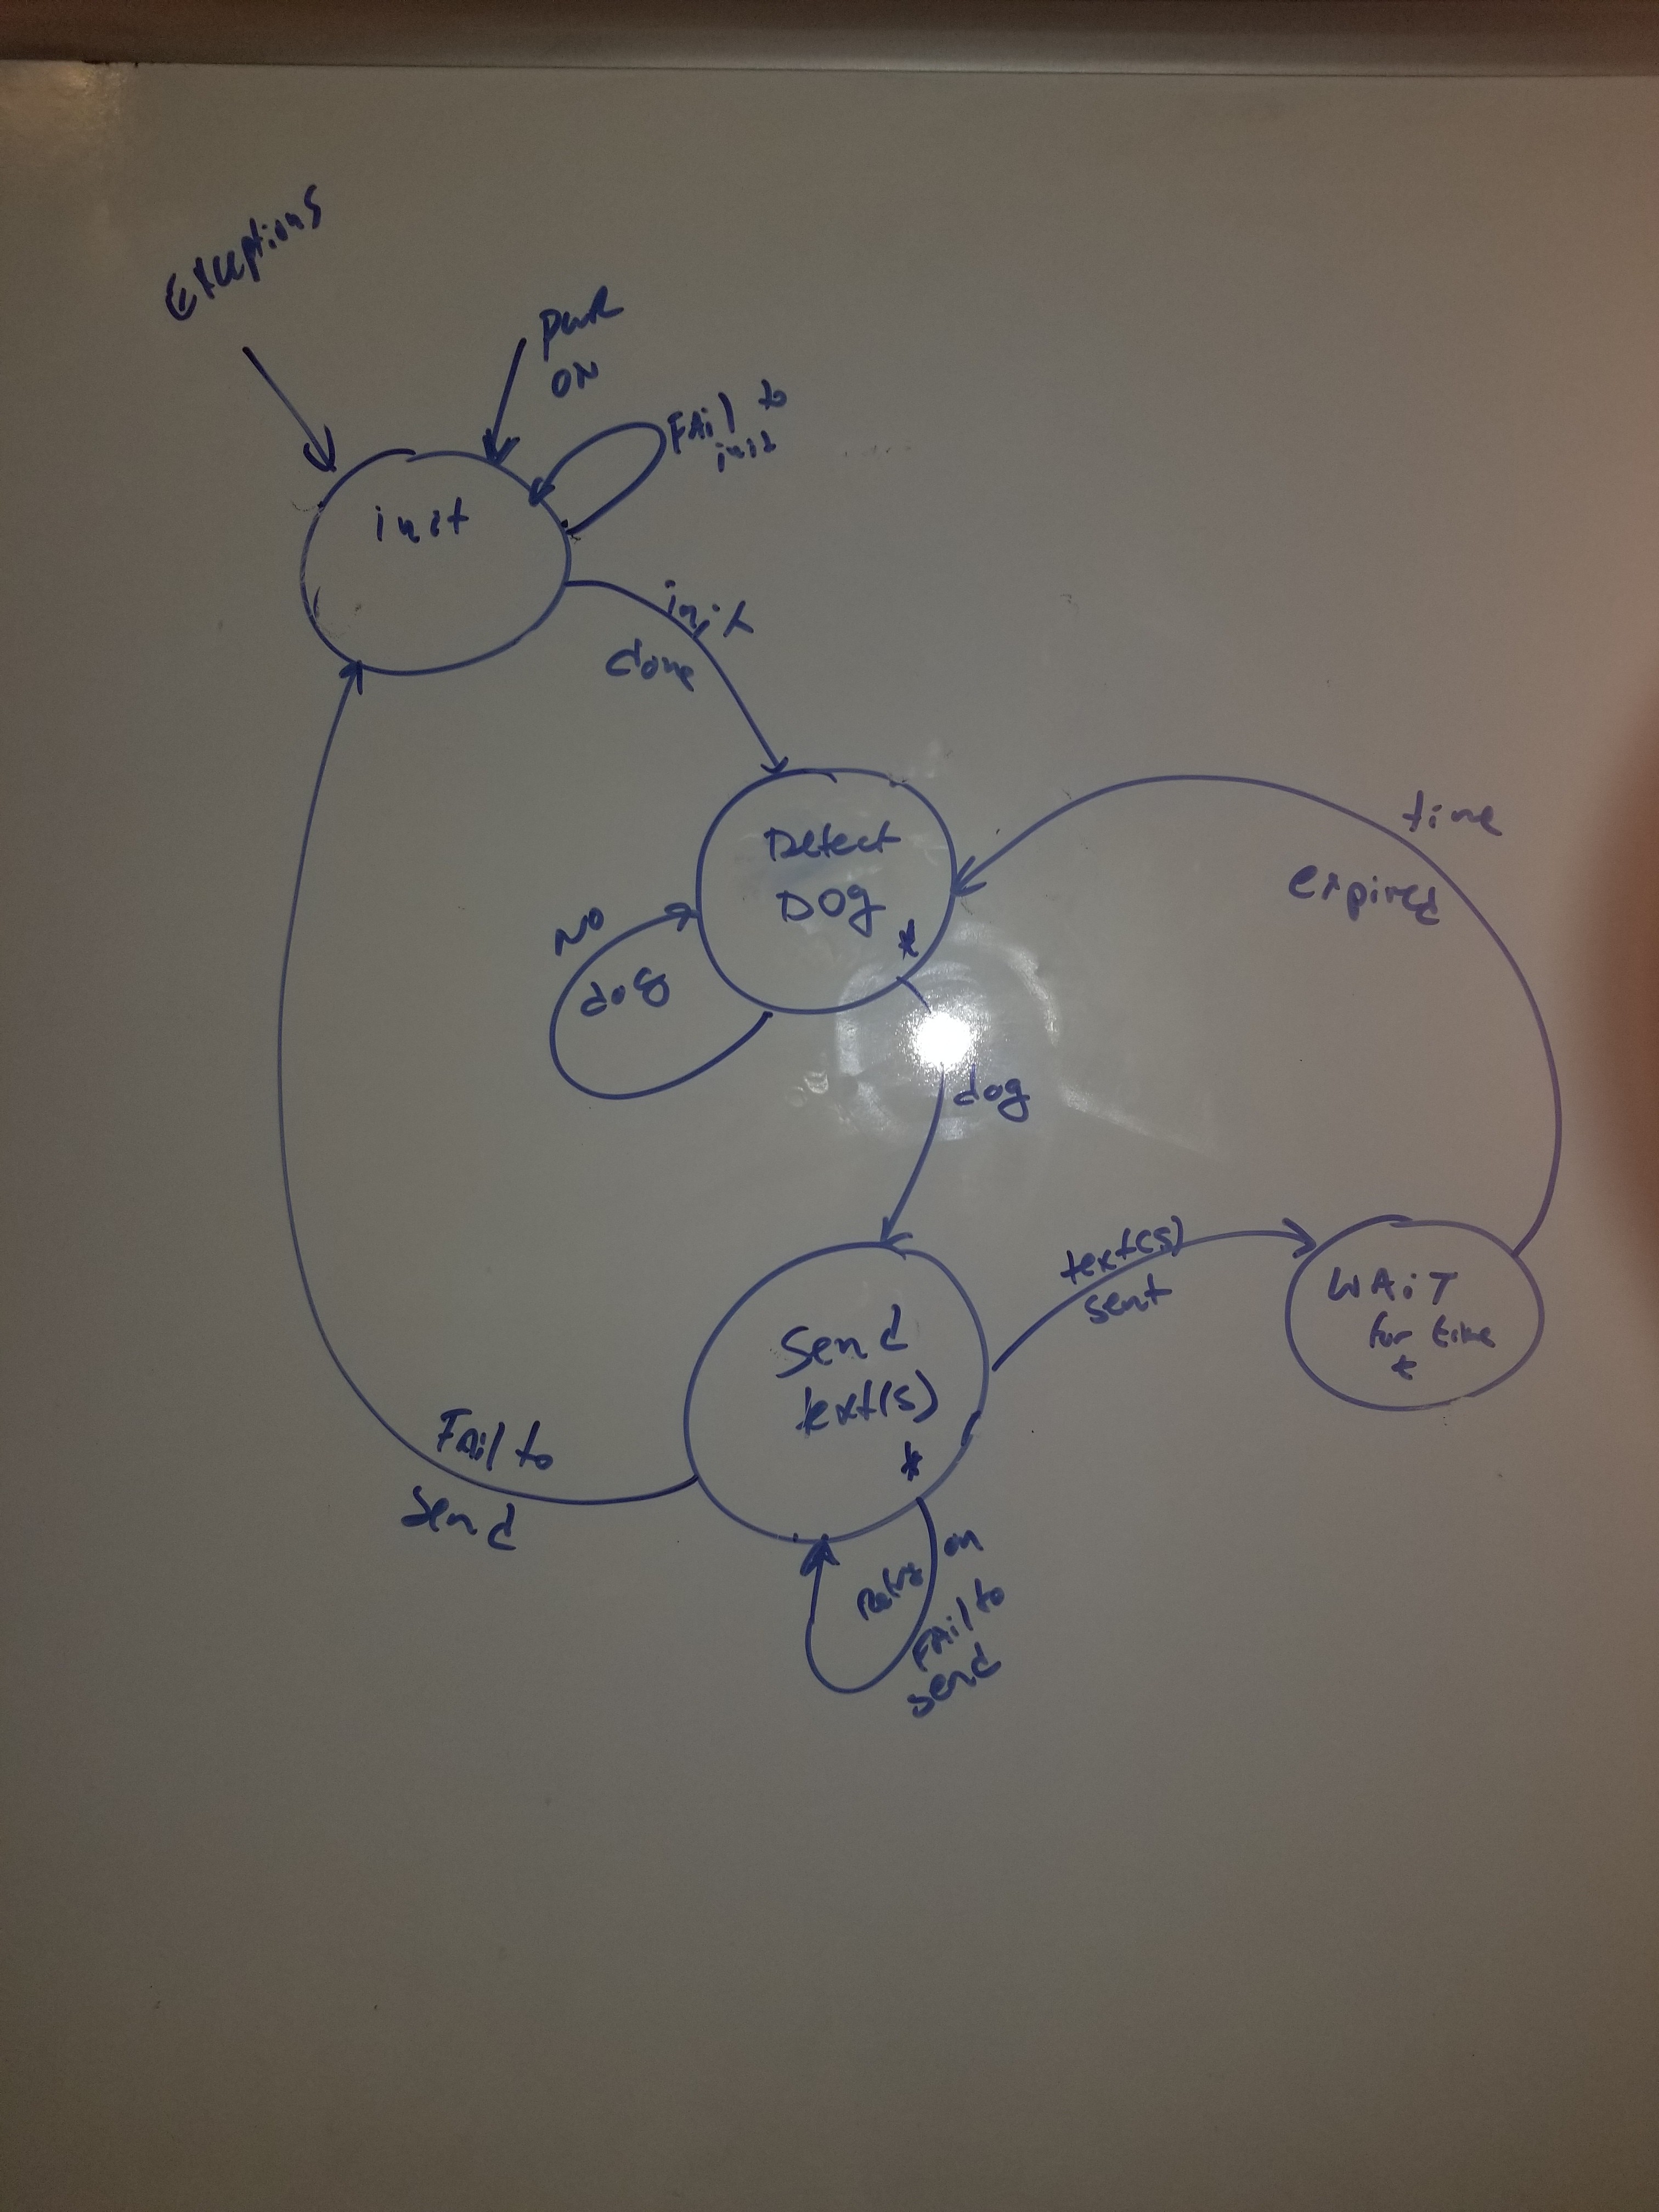 Exceptions
pwr
ON
FAil to
init
init
init
done
Detect
DOg
*
No
dog
dog
time
expired
text(s)
sent
WAiT
for time
t
Send
text(s)
*
FAil to
Send
Retry on
FAil to
send